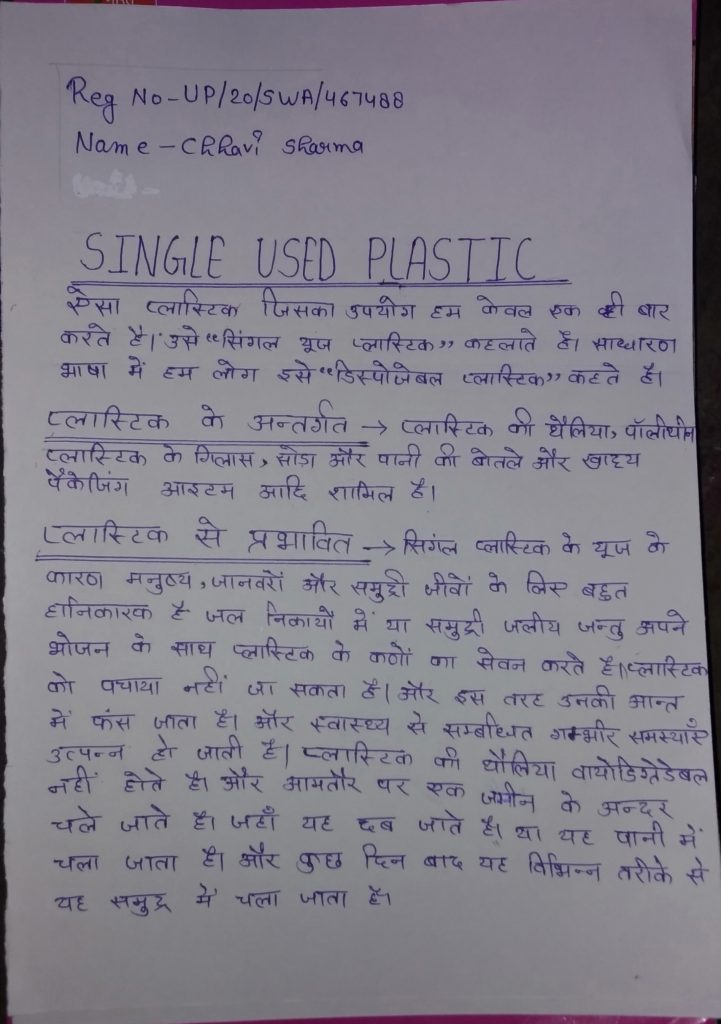 Reg No-UP/20/SWA/467488
Name - Chhavi Sharma
SINGLE USED PLASTIC
ऐसा प्लास्टिक जिसका उपयोग हम केवल एक ही बार
करते है। उसे "सिंगल यूज प्लास्टिक" कहलाते है। साधारण
भाषा में हम लोग इसे "डिस्पोजेबल प्लास्टिक" कहते है।
प्लास्टिक के अन्तर्गत → प्लास्टिक की थैलिया, पॉलीथीन
प्लास्टिक के गिलास, सोडा और पानी की बोतले और खाद्य
पैकेजिंग आइटम आदि शामिल है।
प्लास्टिक से प्रभावित → सिगंल प्लास्टिक के यूज के
कारण मनुष्य, जानवरों और समुद्री जीवों के लिए बहुत
हानिकारक है जल निकायों में या समुद्री जलीय जन्तु अपने
भोजन के साथ प्लास्टिक के कणों का सेवन करते है। प्लास्टिक
को पचाया नहीं जा सकता है। और इस तरह उनकी आन्त
में फंस जाता है। और स्वास्थ्य से सम्बंधित गम्भीर समस्याएँ
उत्पन्न हो जाती है। प्लास्टिक की थैलिया बायोडिग्रेडेबल
नहीं होते है। और आमतौर पर एक जमीन के अन्दर
चले जाते है। जहाँ यह दब जाते है। या यह पानी में
चला जाता है। और कुछ दिन बाद यह विभिन्न तरीके से
यह समुद्र में चला जाता है।